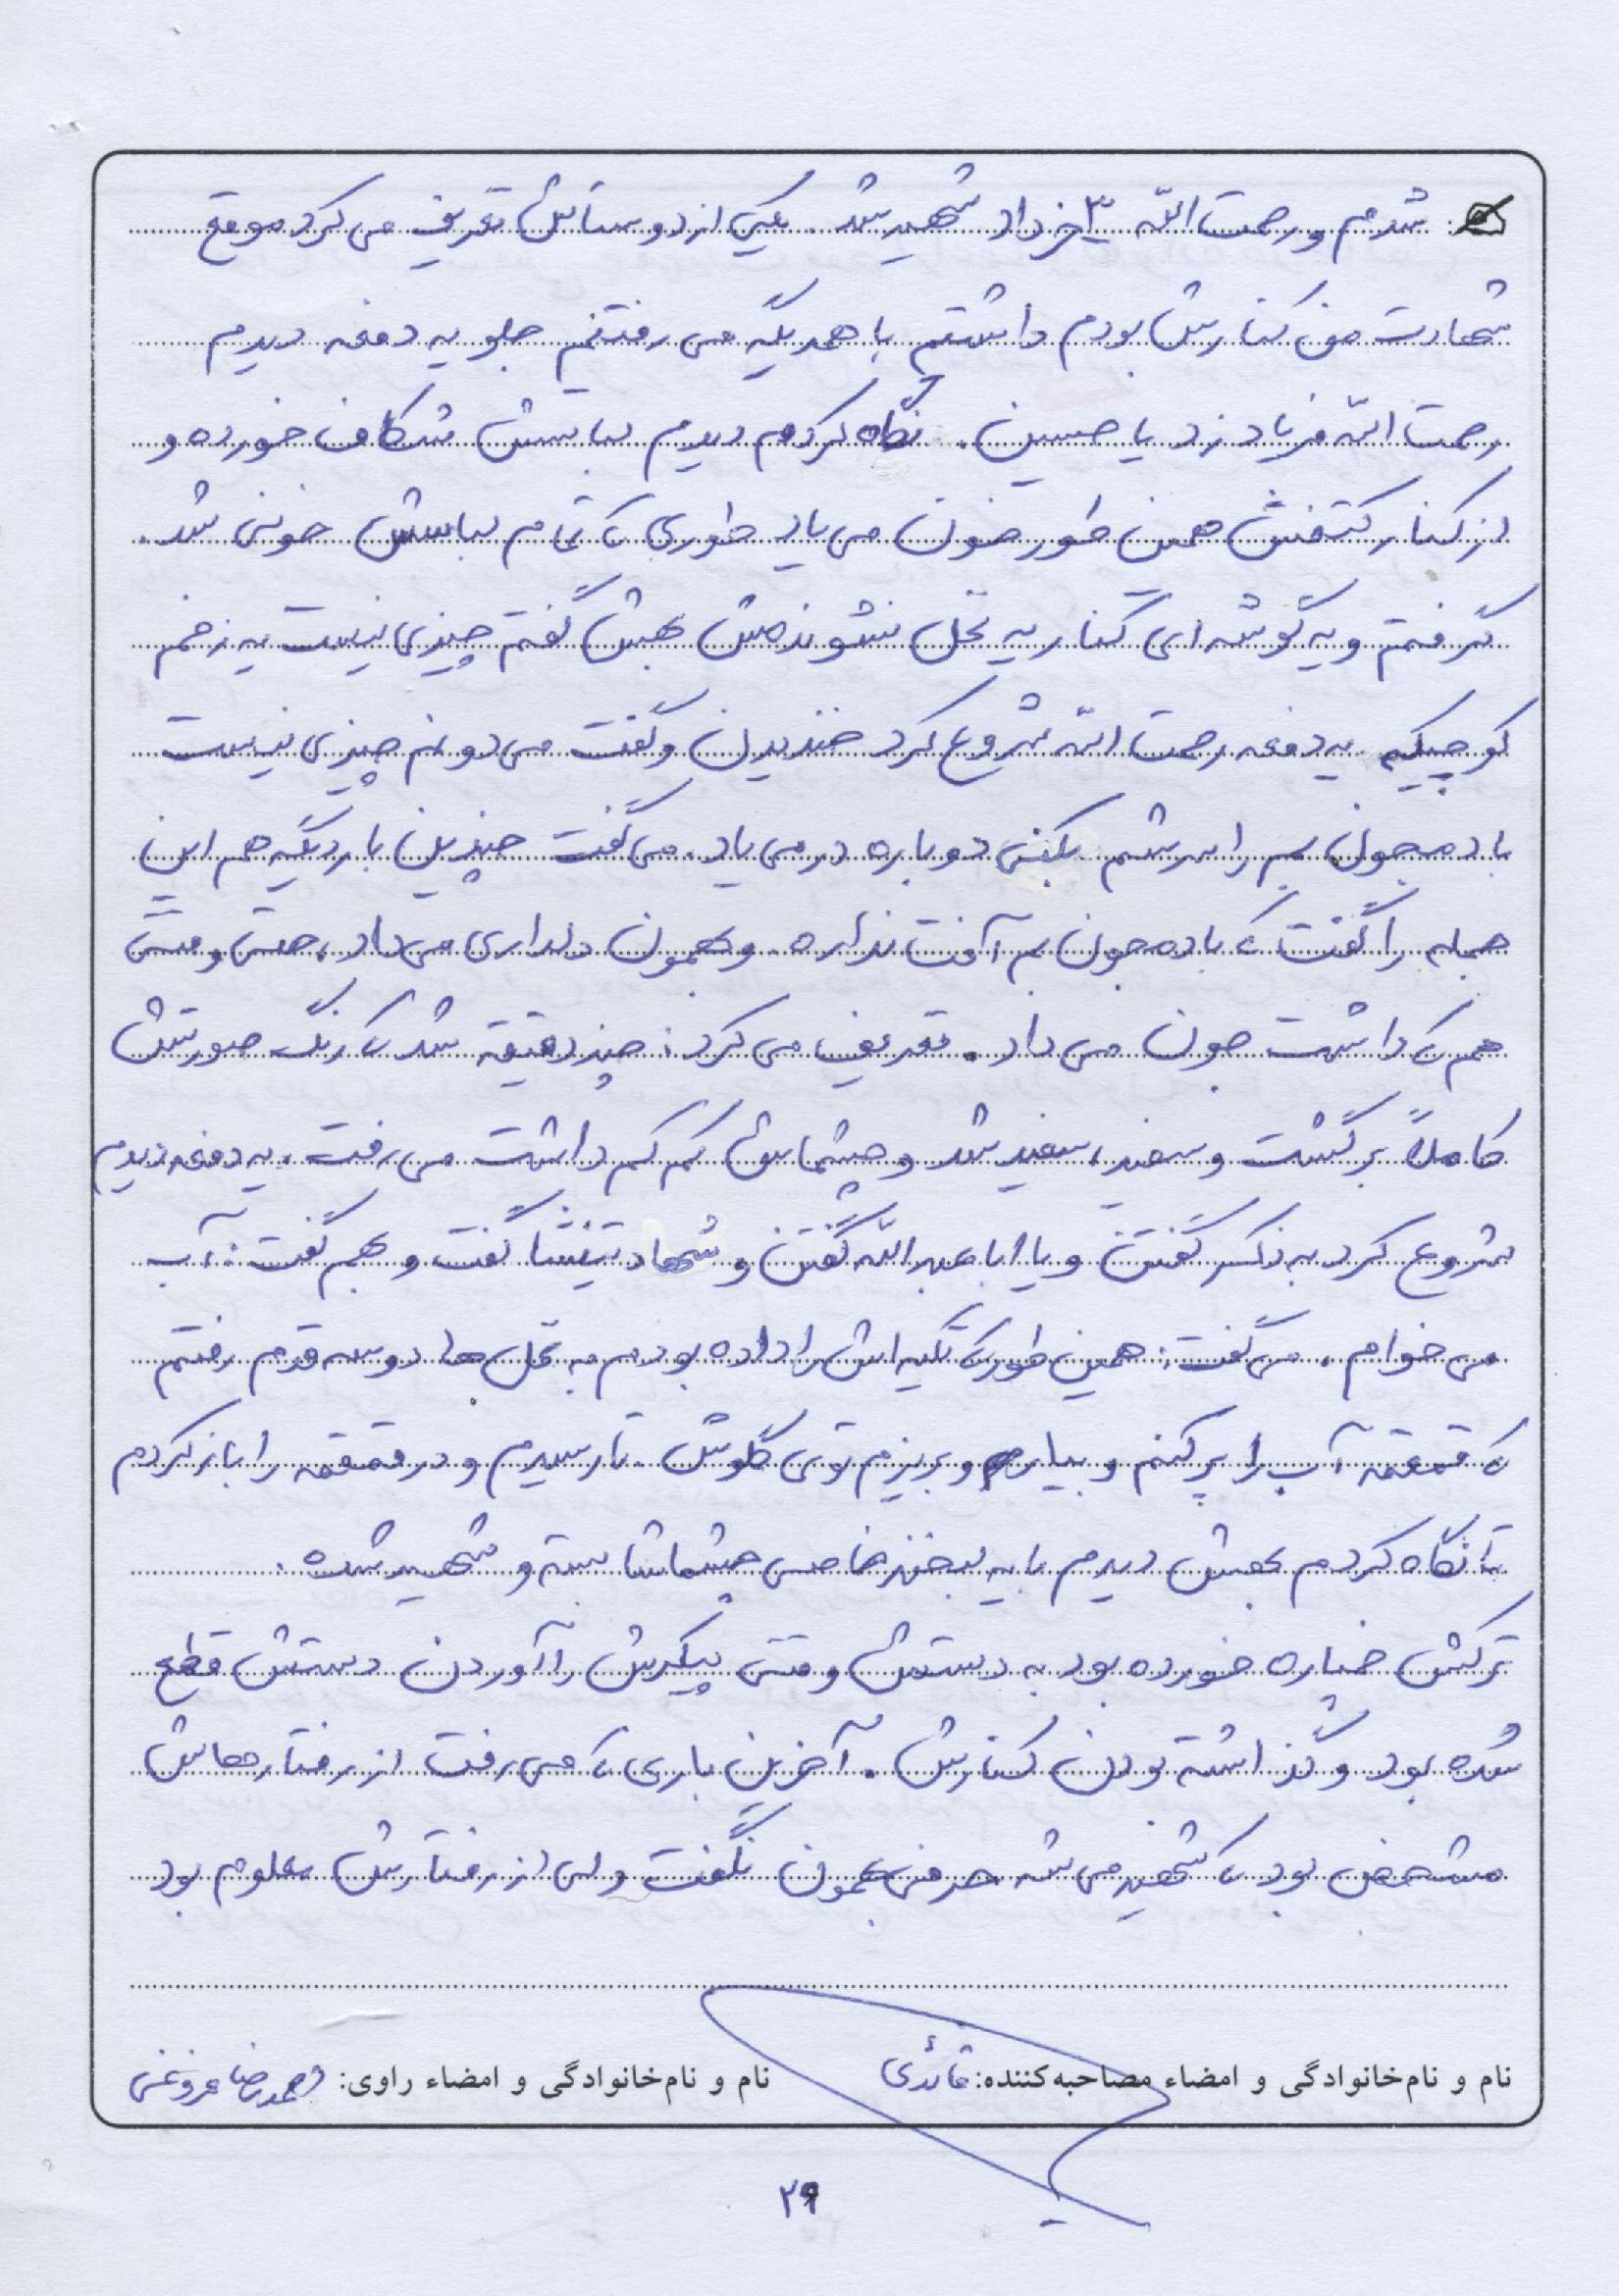 شدم و رحمت الله ۳ خرداد شهید شد. یکی از دوستاش تعریف می کرد موقع
شهادت من کنارش بودم داشتیم با همدیگه می رفتیم جلو یه دفعه دیدم
رحمت الله فریاد زد یا حسین. نگاه کردم دیدم لباسش شکاف خورده و
از کنار کتفش همین طور خون می یاد طوری که تمام لباسش خونی شد.
گرفتم و یه گوشه ای کنار یه نخل نشوندمش بهش گفتم چیزی نیست یه زخم
کوچیکیه یه دفعه رحمت الله شروع کرد خندیدن و گفت می دونم چیزی نیست
بادمجون بم را سرشم بکنی دوباره در می یاد. می گفت چندین بار دیگه هم این
جمله را گفت که بادمجون بم آفت نداره. و بهمون دلداری می داد، حتی وقتی
هم که داشت جون می داد. تعریف می کرد: چند دقیقه شد که رنگ صورتش
کاملاً برگشت و سفید، سفید شد و چشماش کم کم داشت می رفت، یه دفعه دیدم
شروع کرد به ذکر گفتن و یا ابا عبدالله گفتن و شهادتینشا گفت و بهم گفت: آب
می خوام، می گفت: همین طور که تکیه اش را داده بودم به نخل ها دو سه قدم رفتم
که قمقمه آب را پر کنم و بیارم و بریزم توی گلوش. تا رسیدم و در قمقمه را باز کردم
تا نگاه کردم بهش دیدم با یه لبخند خاصی چشماشا بسته و شهید شده.
ترکش خمپاره خورده بود به دستش وقتی پیکرش را آوردن دستش قطع
شده بود و گذاشته بودن کنارش. آخرین باری که می رفت از رفتارهاش
مشخص بود که شهید می شه حرفی بهمون نگفت ولی از رفتارش معلوم بود
نام و نام‌خانوادگی و امضاء مصاحبه‌کننده: قائدی
نام و نام‌خانوادگی و امضاء راوی: احمدرضا
۲۹